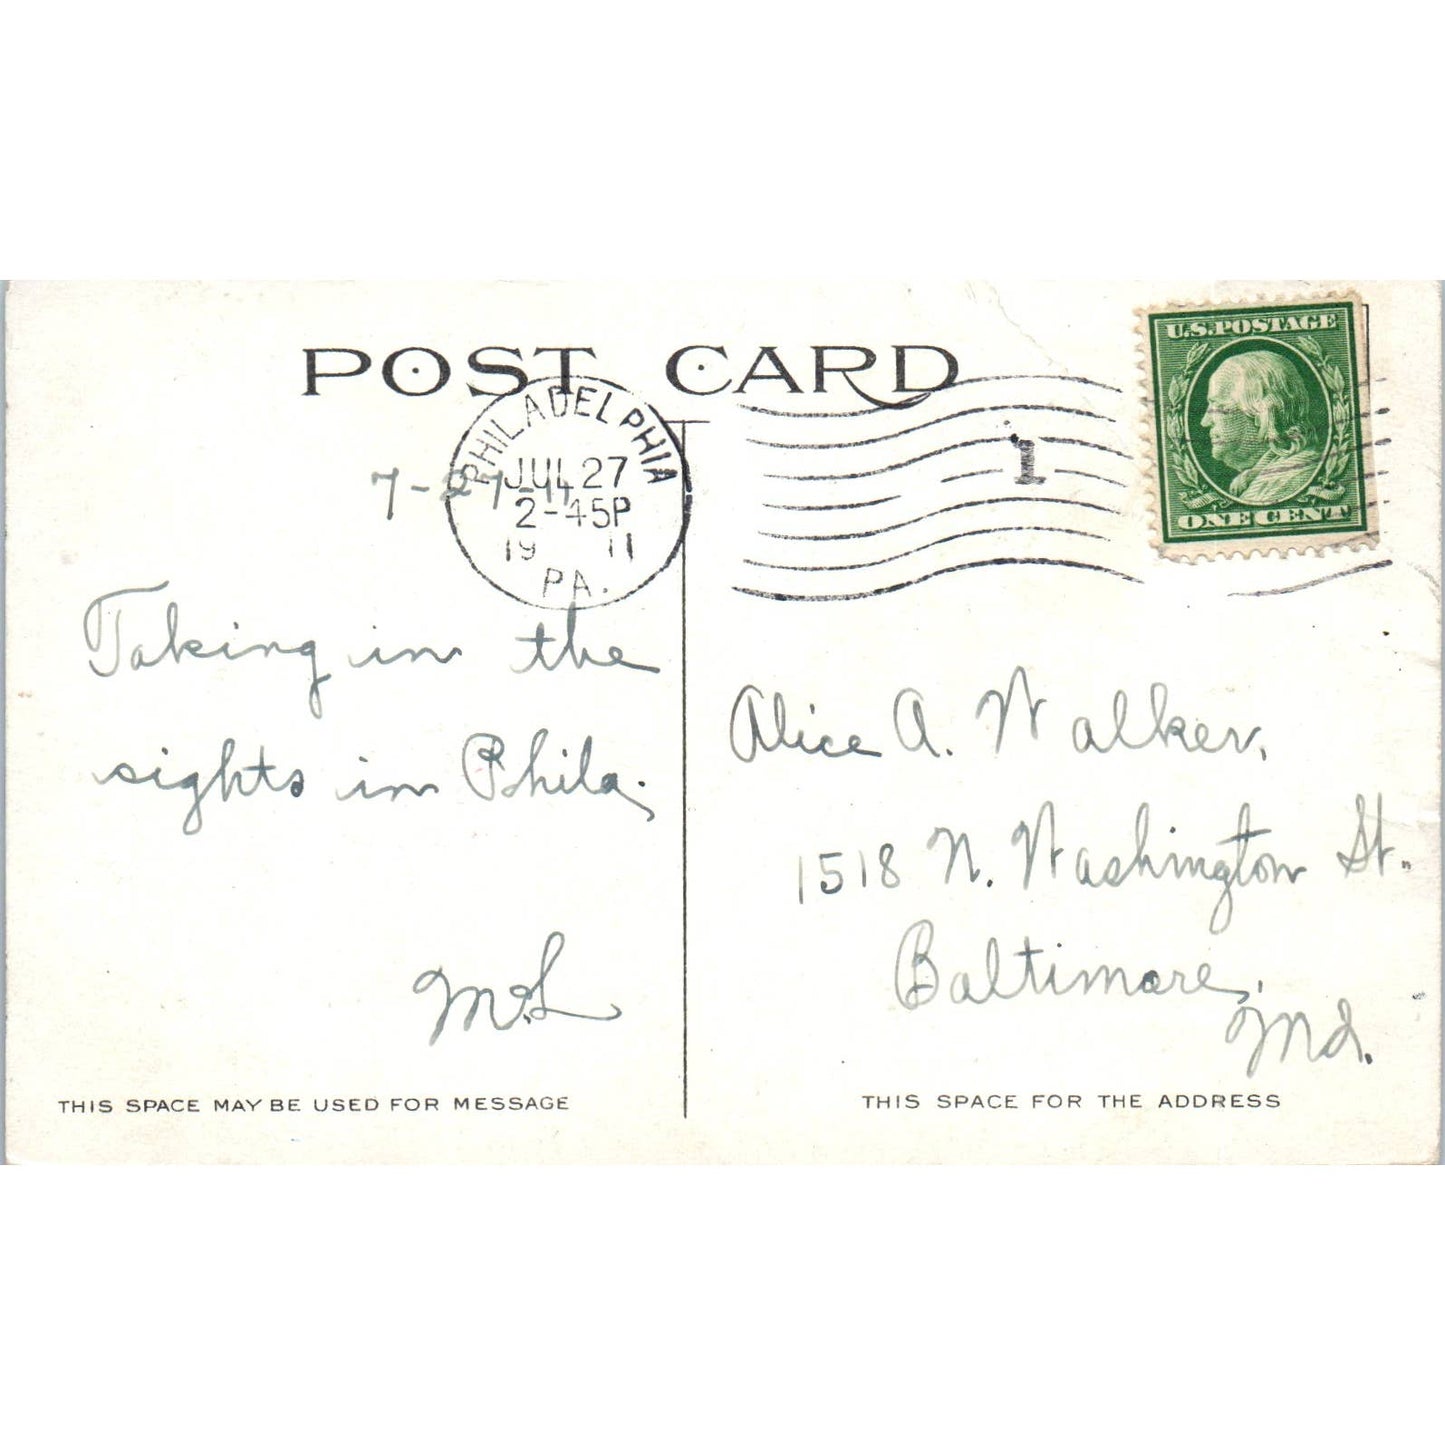 POST CARD
U.S. POSTAGE
ONE CENT
PHILADELPHIA
JUL 27
2-45P
19 11
PA.
1
7-27-11
Taking in the
sights in Phila.
M.L
Alice A. Walker,
1518 N. Washington St.
Baltimore,
Md.
THIS SPACE MAY BE USED FOR MESSAGE
THIS SPACE FOR THE ADDRESS